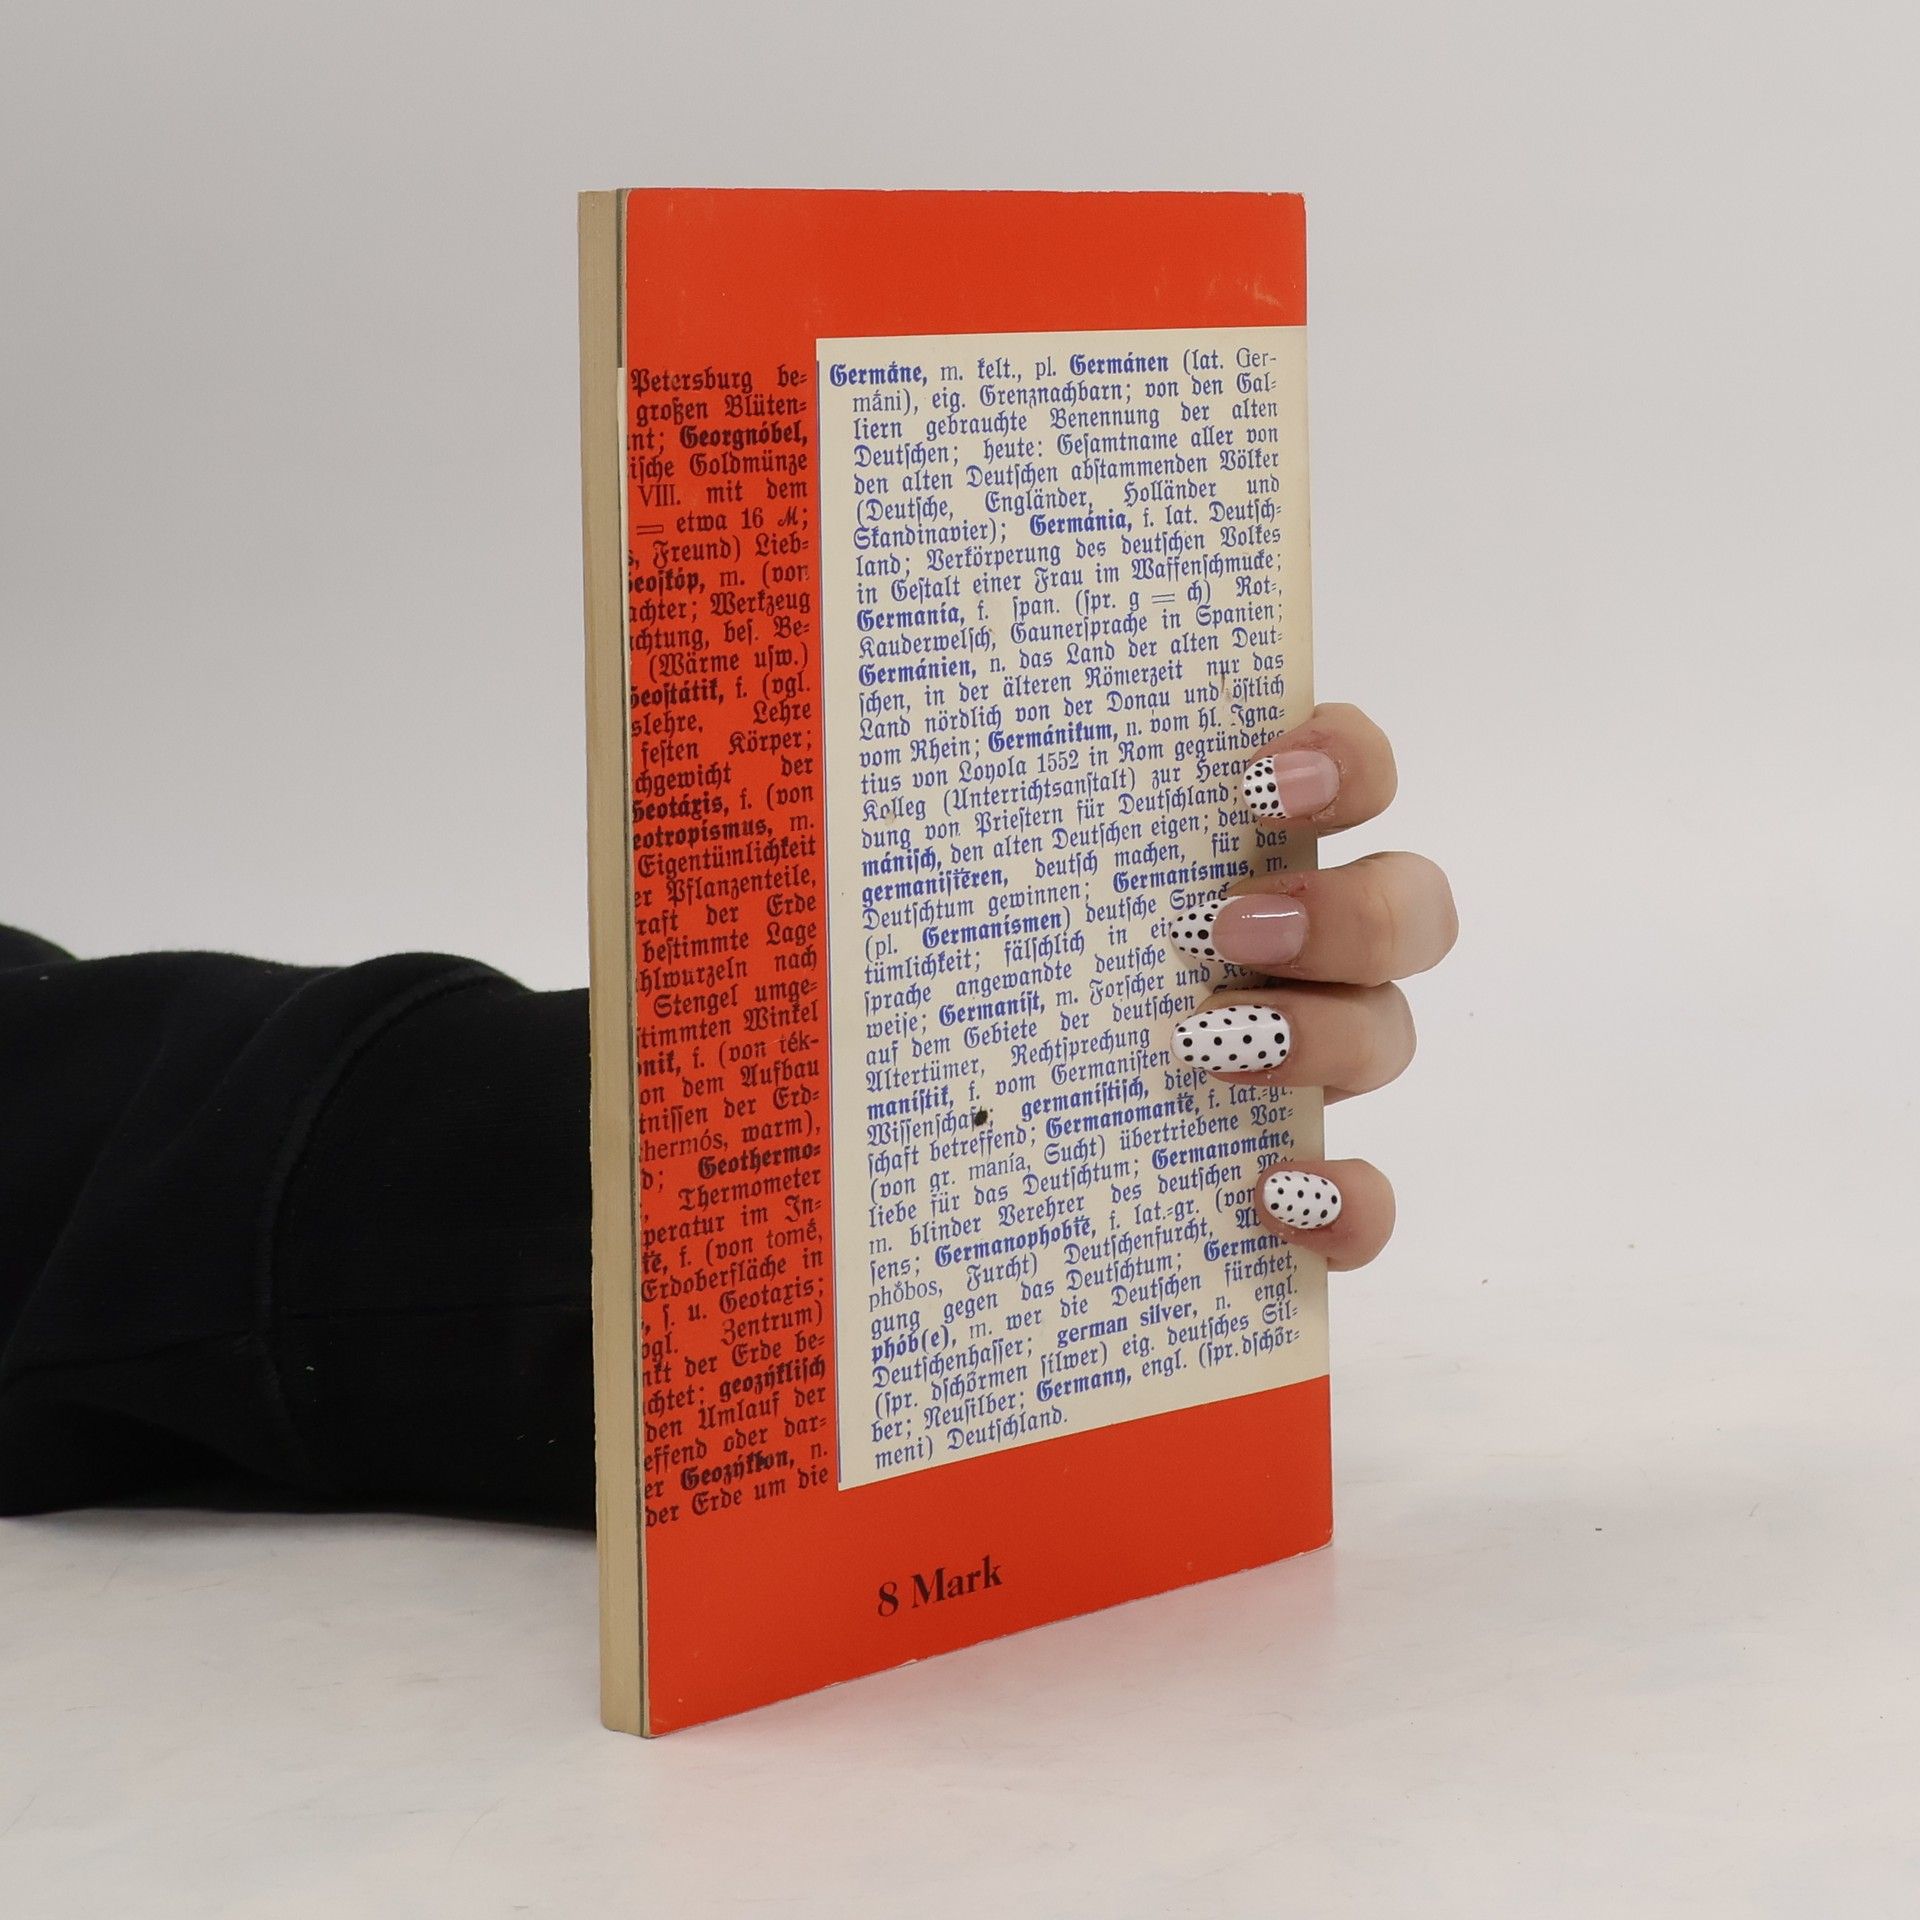 Petersburg be-
großen Blüten-
Georgnóbel,
Goldmünze
VIII. mit dem
= etwa 16 ℳ;
Freund) Lieb-
m. (von
Werkzeug
bes. Be-
(Wärme usw.)
f. (vgl.
Lehre
festen Körper;
der
f. (von
m.
Eigentümlichkeit
Pflanzenteile,
der Erde
bestimmte Lage
nach
Stengel umge-
Winkel
f. (von ték-
dem Aufbau
der Erd-
warm),
Geothermo-
Thermometer
im In-
f. (von tomé,
Erdoberfläche in
s. u. Geotaxis;
Zentrum)
der Erde be-
geozýklisch
den Umlauf der
oder dar-
Geozýklon, n.
der Erde um die
Germáne, m. kelt., pl. Germánen (lat. Ger-
máni), eig. Grenznachbarn; von den Gal-
liern gebrauchte Benennung der alten
Deutschen; heute: Gesamtname aller von
den alten Deutschen abstammenden Völker
(Deutsche, Engländer, Holländer und
Skandinavier); Germánia, f. lat. Deutsch-
land; Verkörperung des deutschen Volkes
in Gestalt einer Frau im Waffenschmucke;
Germanía, f. span. (spr. g = ch) Rot-,
Kauderwelsch, Gaunersprache in Spanien;
Germánien, n. das Land der alten Deut-
schen, in der älteren Römerzeit nur das
Land nördlich von der Donau und östlich
vom Rhein; Germánikum, n. vom hl. Igna-
tius von Loyola 1552 in Rom gegründetes
Kolleg (Unterrichtsanstalt) zur Heran
dung von Priestern für Deutschland;
mánisch, den alten Deutschen eigen;
germanisieren, deutsch machen, für das
Deutschtum gewinnen; Germanísmus, m.
(pl. Germanísmen) deutsche
tümlichkeit; fälschlich in
sprache angewandte deutsche
weise; Germaníst, m. Forscher und
auf dem Gebiete der deutschen
Altertümer, Rechtsprechung
manístik, f. vom Germanisten
Wissenschaft; germanístisch, diese
schaft betreffend; Germanomanie, f. lat.-gr.
(von gr. manía, Sucht) übertriebene Vor-
liebe für das Deutschtum; Germanománe,
m. blinder Verehrer des deutschen We-
sens; Germanophobie, f. lat.-gr. (von
phóbos, Furcht) Deutschenfurcht,
gung gegen das Deutschtum;
phób(e), m. wer die Deutschen fürchtet,
Deutschenhasser; german silver, n. engl.
(spr. dschörmen silwer) eig. deutsches Sil-
ber; Neusilber; Germany, engl. (spr. dschör-
meni) Deutschland.
8 Mark